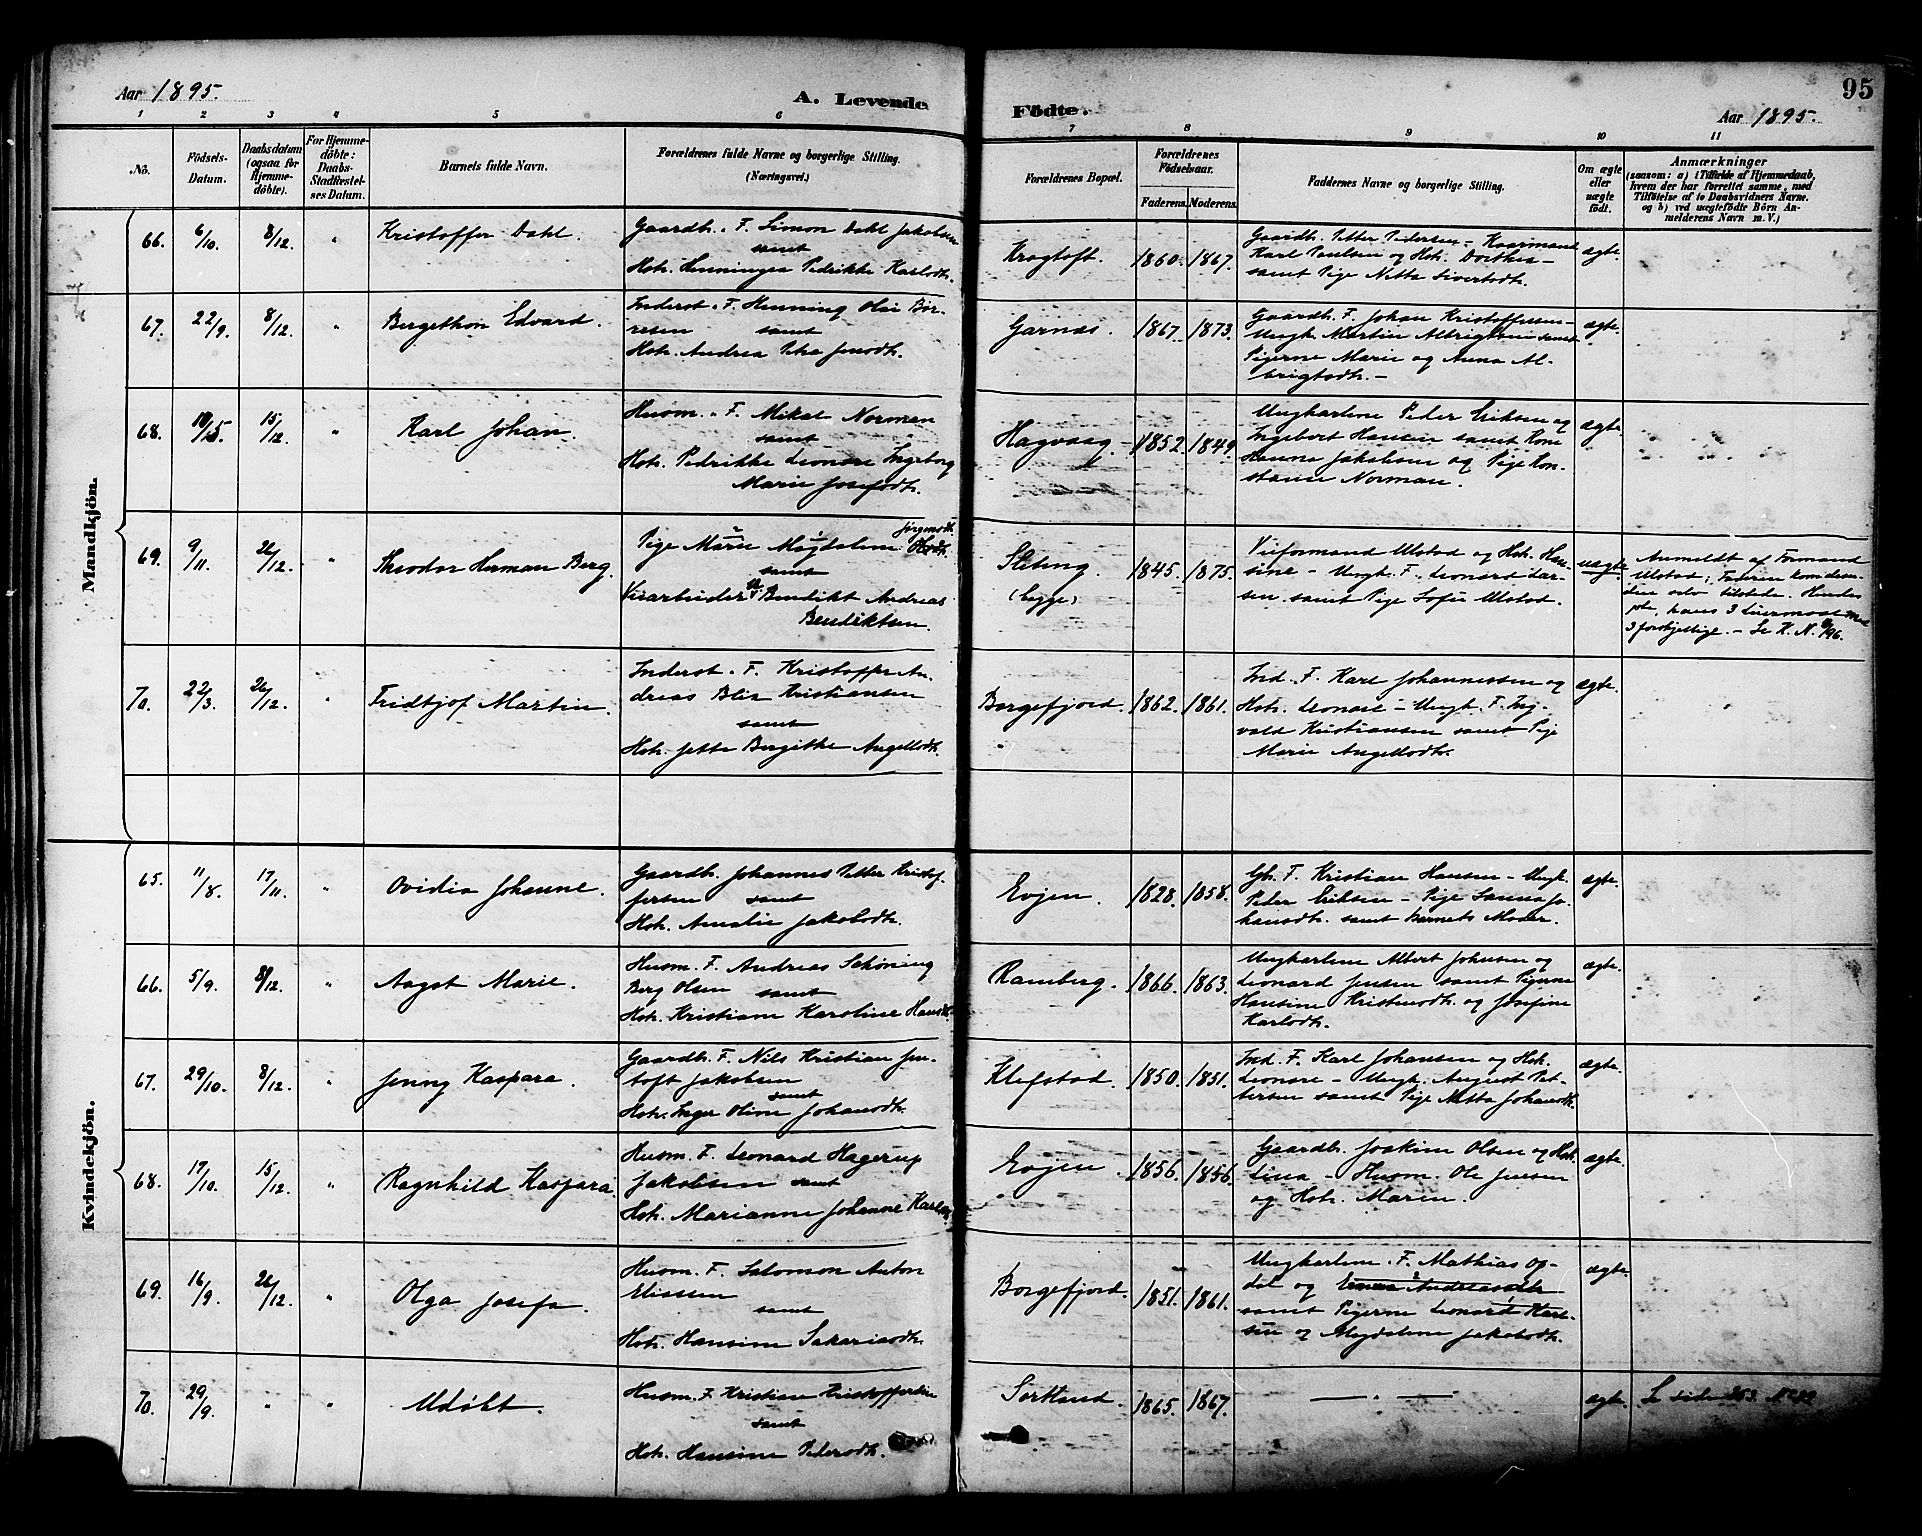 Aar 1895.
A. Levende
Födte.
95
Aar 1895.
1 2 3 4 5 6 7 8 9 10 11
No.
Födsels-
Datum.
Daabsdatum
(ogsaa for
Hjemme-
döbte).
For Hjemme-
döbte:
Daabs-
Stadfæstel-
ses Datum.
Barnets fulde Navn.
Forældrenes fulde Navne og borgerlige Stilling.
(Næringsvei.)
Forældrenes Bopæl.
Forældrenes
Födselsaar.
Faderens. Moderens.
Faddernes Navne og borgerlige Stilling.
Om ægte
eller
uægte
födt.
Anmærkninger
(saasom: a) i Tilfælde af Hjemmedaab,
hvem der har forrettet samme, med
Tilföielse af to Daabsvidners Navne.
og b) ved uægtefödte Börn An-
melderens Navn m. V.)
Mandkjön.
66. 6/10. 8/12. " Kristoffer Dahl.
Gaardb. F. Simon Dahl Jakobsen
samt
Hstr. Henningea Fedrikke Karlsdtr.
Kragtoft. 1860. 1867.
Gaardb. Petter Pedersen - Kaarmand
Karl Paulsen og Hstr. Dorthea -
samt Pige Netta Sivertsdtr.
ægte.
67. 22/9. 8/12. " Bergethon Edvard.
Inderst. F. Henning Olai Bör-
resen samt
Hstr. Andrea Petra Jensdtr.
Garnæs. 1867. 1873.
Gaardb. F. Johan Kristoffersen -
Ungk. Martin Albrigtsen samt
Pigerne Marie og Anna Al-
brigtsdtr. -
ægte.
68. 15/12. " Karl Johan.
Husm. F. Mikal Norman
samt
Hstr. Fedrikke Leonore Ingeborg
Marie Josefsdtr.
Hagvaag - 1852. 1849.
Ungkarlene Peder Eriksen og
Ingebert Hansen samt Kone
Hanna Jakobsen og Pige Kon-
stance Norman.
ægte.
69. 9/11. 26/12. " Theodor Herman Berg.
Pige Marie Magdalena Jørgensdtr.
samt
Veiarbeider Benedikt Andreas
Bendiktsen.
Sleting.
(bygge)
1845. 1875.
Veiformand Ulstad og Hstr. Han-
sine - Ungk. F. Leonard Lar-
sen samt Pige Sofie Ulstad.
uægte
Anmeldt af Formand
Ulstad; Faderen kom
den selv tilstede. Hendes
hans 3 Leiermaal med
3 forskjellige. - Se K. N.
70. 22/3. 26/12. " Fridtjof Martin.
Inderst. F. Kristoffer An-
dreas Blix Kristiansen
samt
Hstr. Jette Bergitte Angellsdtr.
Borgefjord. 1862. 1861.
Ind. F. Karl Johannessen og
Hstr. Leonore - Ungk. F. Ing-
vald Kristiansen samt Pige
Marie Angellsdtr.
ægte.
Kvindekjön.
65. 11/8. 17/11. " Ovidia Johanne.
Gaardb. Johannes Petter Kristof-
fersen samt
Hstr. Amalie Jakobsdtr.
Evjen. 1828. 1858.
Gb. F. Kristian Hansen - Ungk.
Peder Eriksen - Pige Sanna Jo-
hansdtr. samt Barnets Moder.
ægte.
66. 5/9. 8/12. " Aagot Marie.
Husm. F. Andreas Schöning
Berg Olsen samt
Hstr. Kristiane Karoline Hansdtr.
Ramberg. 1866. 1863.
Ungkarlene Albert Johnsen og
Leonard Jensen samt Pigerne
Hansine Kristensdtr. og Josefine
Karlsdtr.
ægte.
67. 29/10. 8/12. " Jenny Kaspara.
Gaardb. F. Nils Kristian Jen-
toft Jakobsen
samt
Hstr. Inger Oline Johansdtr.
Klefstad. 1850. 1851.
Ind. F. Karl Johansen og Hstr.
Leonore - Ungk. August Pet-
tersen samt Pige Netta Johansdtr.
ægte.
68. 17/10. 15/12. " Ragnhild Kaspara.
Husm. F. Leonard Hagerup
Jakobsen samt
Hstr. Marianne Johanne Karlsdtr
Evjen. 1856. 1856.
Gaardb. Joakim Olsen og Hstr.
Lina - Husm. Ole Jensen
og Hstr. Maren.
ægte.
69. 16/9. 26/12. " Olga Josefa.
Husm. F. Salomon Anton
Eliassen
samt
Hstr. Hansine Sakariasdtr.
Borgefjord. 1851. 1861.
Ungkarlene F. Mathias Op-
dal og
samt Pigerne Leonard Karl-
sen og Magdalena Jakobsdtr.
ægte.
70. 29/9. " " Udöbt.
Husm. F. Kristian Kristoffersen
samt
Hstr. Hansine Pedersdtr.
Sortland. 1865. 1867.
— " —
ægte.
Se side 253.